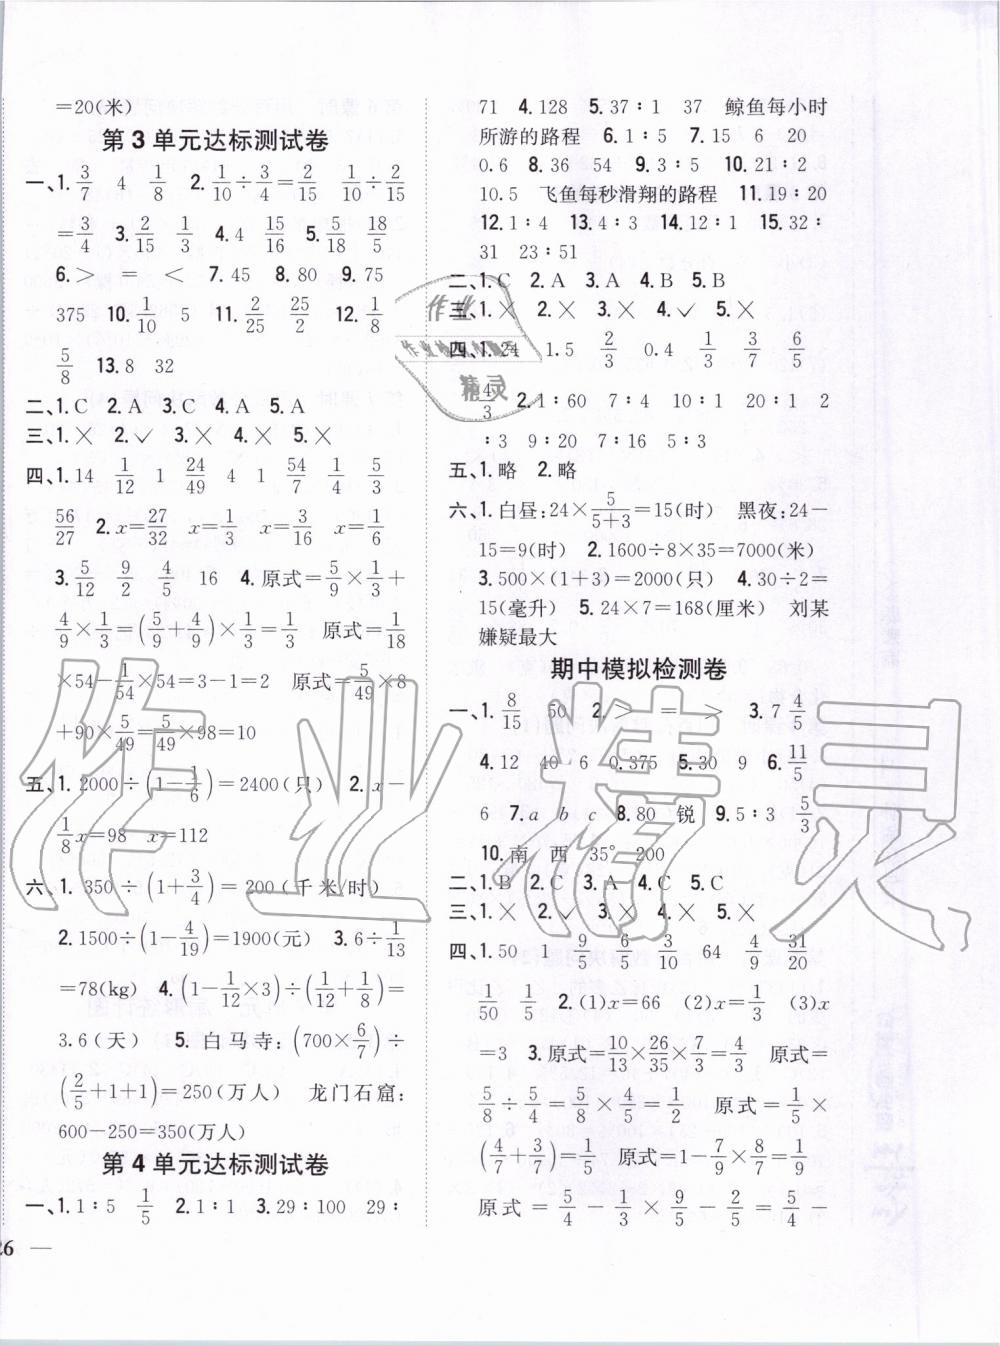 =20(米)
第3单元达标测试卷
一、1. 3/7 4 1/8 2. 1/10÷3/4=2/15 1/10÷2/15
=3/4 3. 2/15 1/3 4. 4 15/16 5. 5/18 18/5
6. > = < 7. 45 8. 80 9. 75
375 10. 1/10 5 11. 2/25 25/2 12. 1/8
5/8 13. 8 32
二、1. C 2. A 3. C 4. A 5. A
三、1. × 2. ✓ 3. × 4. × 5. ×
四、1. 14 1/12 1 24/49 4 1 54/7 1/4 5/3
56/27 2. x=27/32 x=1/3 x=3/16 x=1/6
3. 5/12 9/2 4/5 16 4. 原式=5/9×1/3+
4/9×1/3=(5/9+4/9)×1/3=1/3 原式=1/18
×54-1/54×54=3-1=2 原式=5/49×8
+90×5/49=5/49×98=10
五、1. 2000÷(1-1/6)=2400(只) 2. x-
1/8x=98 x=112
六、1. 350÷(1+3/4)=200(千米/时)
2. 1500÷(1-4/19)=1900(元) 3. 6÷1/13
=78(kg) 4. (1-1/12×3)÷(1/12+1/8)=
3.6(天) 5. 白马寺:(700×6/7)÷
(2/5+1+1)=250(万人) 龙门石窟:
600-250=350(万人)
第4单元达标测试卷
一、1. 1∶5 1/5 2. 1∶1 3. 29∶100 29∶
26 —
71 4. 128 5. 37∶1 37 鲸鱼每小时
所游的路程 6. 1∶5 7. 15 6 20
0.6 8. 36 54 9. 3∶5 10. 21∶2
10.5 飞鱼每秒滑翔的路程 11. 19∶20
12. 1∶4 13. 4∶3 14. 12∶1 15. 32∶
31 23∶51
二、1. C 2. A 3. A 4. B 5. B
三、1. × 2. × 3. × 4. ✓ 5. ×
四、1. 24 1.5 2/3 0.4 1/3 3/7 6/5
4/3 2. 1∶60 7∶4 10∶1 20∶1 2
∶3 9∶20 7∶16 5∶3
五、1. 略 2. 略
六、1. 白昼:24×5/(5+3)=15(时) 黑夜:24-
15=9(时) 2. 1600÷8×35=7000(米)
3. 500×(1+3)=2000(只) 4. 30÷2=
15(毫升) 5. 24×7=168(厘米) 刘某
嫌疑最大
期中模拟检测卷
一、1. 8/15 50 2. > = > 3. 7 4/5
4. 12 40 6 0.375 5. 30 9 6. 11/5
6 7. a b c 8. 80 锐 9. 5∶3 5/3
10. 南 西 35° 200
二、1. B 2. C 3. A 4. C 5. C
三、1. × 2. ✓ 3. × 4. × 5. ×
四、1. 50 1 9/5 6/5 3/10 64 4/9 31/20
1/50 1/5 2. (1)x=66 (2)x=1/3 (3)x
=3 3. 原式=10/13×26/35×7/3=4/3 原式=
5/8÷5/4=5/8×4/5=1/2 原式=1/5×
(4/7+3/7)=1/5 原式=1-7/9×8/7=1/9
原式=5/4-1/3×9/5-2/5=5/4-
作业
作业检查小精灵
精灵
作业精灵